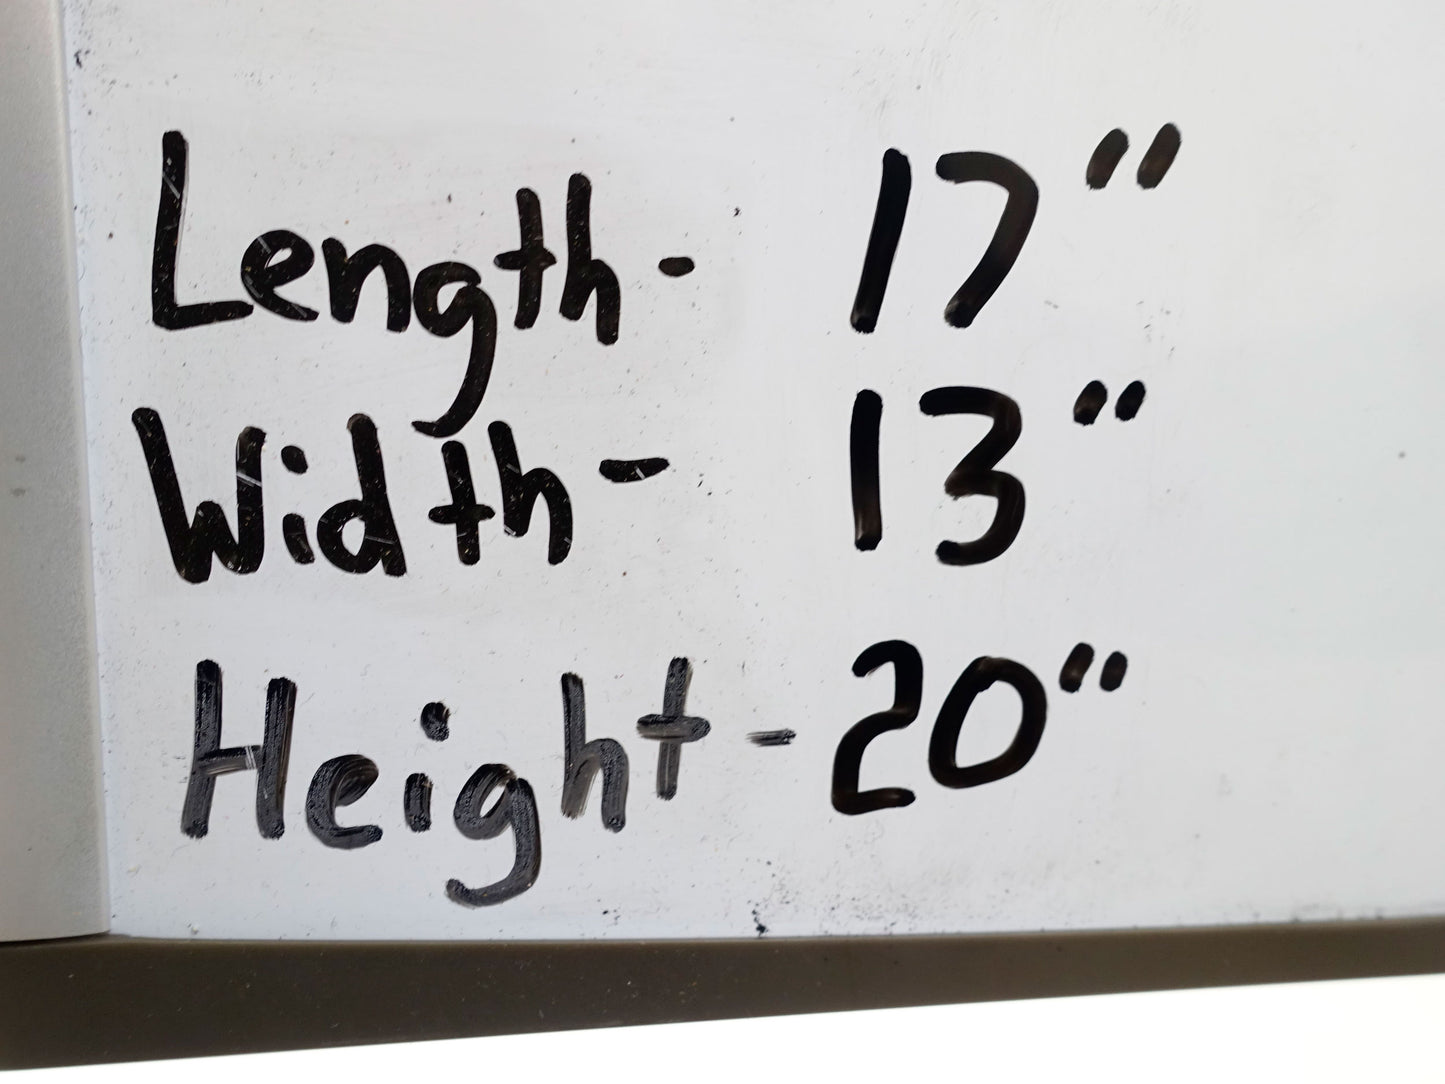 Length- 17"
Width- 13"
Height- 20"